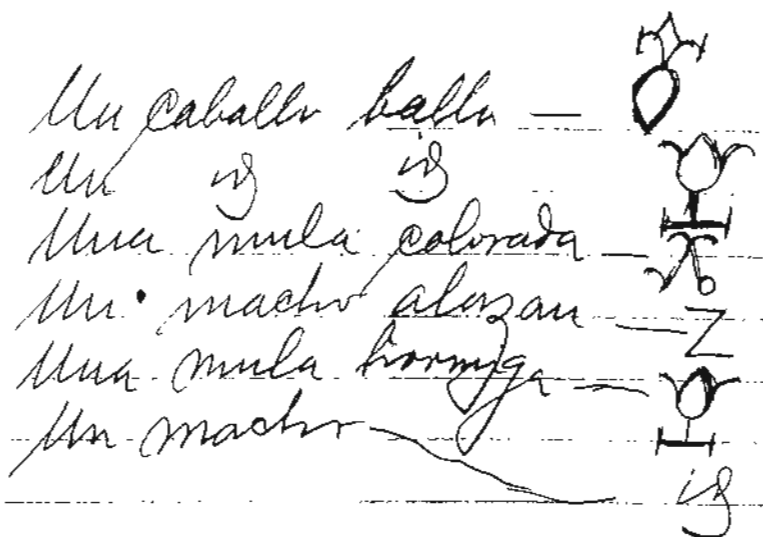 Un caballo ballo —
Un id id
Una mula colorada —
Un macho alazan — Z
Una mula hormiga —
Un macho — id